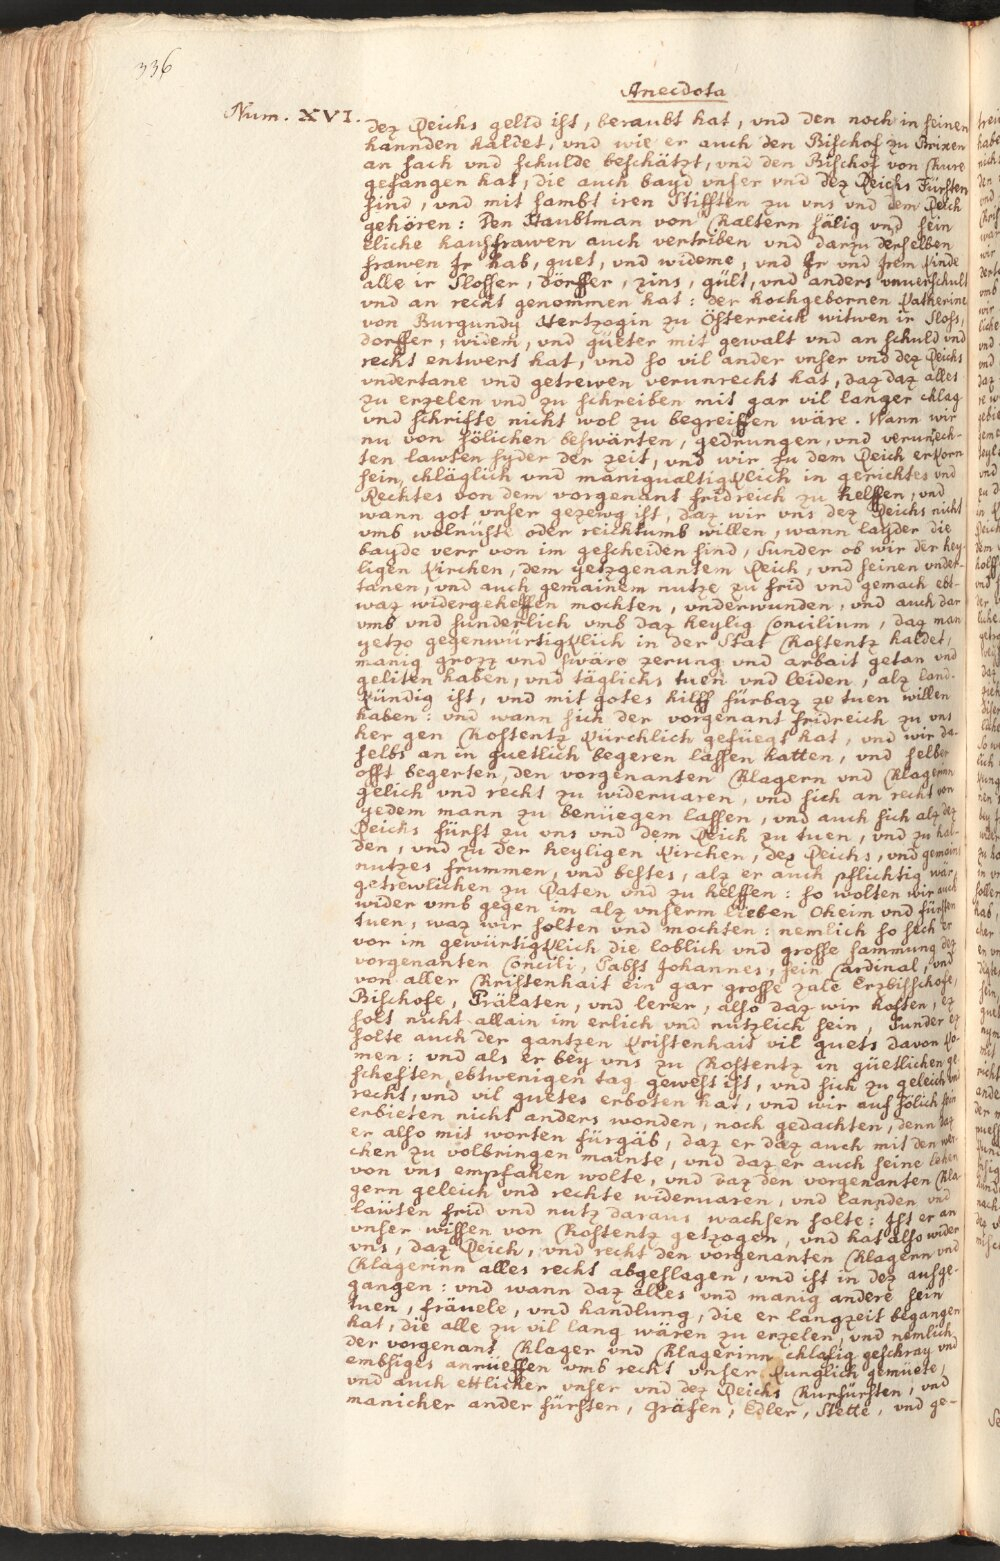 336
Anecdota
Num. XVI.
dez Reichs gelid ist, beraubt hat, vnd den noch in seinen
hannden haldet, vnd wie er auch den Bischof zu Brixen
an sach vnd schulde beschätzt, vnd den Bischof von Chure
gefangen hat, die auch bayd vnser vnd dez Reichs Fürsten
sind, vnd mit sambt iren Stifften zu vns vnd dem Reich
gehören: Den Haubtman von Chaltern sälig vnd sein
eliche hausfrawen auch vertriben vnd darzu derselben
frawen Ir hab, guet, vnd wideme, vnd Ir vnd Irem Kinde
alle ir Slosser, dörffer, zins, gült, vnd anders vnuerschult
vnd an recht genommen hat: der hochgebornen Katherine
von Burgundy Hertzogin zu Österreich witwen ir Sloss,
dorffer, widem, vnd güeter mit gewalt vnd an schuld vnd
recht entwert hat, vnd so vil ander vnser vnd dez Reichs
vndertane vnd getrewen verunrecht hat, daz daz alles
zu erzelen vnd zu schreiben mit gar vil langer chlag
vnd schrifte nicht wol zu begreiffen wäre. Wann wir
nu von sölichen beswärten, gedrungen, vnd verunrech-
ten lawten syder der zeit, vnd wir zu dem Reich erkorn
sein, chläglich vnd manigualtigklich in gerichtes vnd
Rechtes von dem vorgenant fridreich zu helffen, vnd
wann got vnser gezewg ist, daz wir vns dez Reichs nicht
vmb wolnüste oder reichtumb willen, wann layder die
bayde verr von im gescheiden sind, Sunder ob wir der hey-
ligen Kirchen, dem yetzgenantem Reich, vnd seinen vnder-
tanen, vnd auch gemainem nutze zu frid vnd gemach ebt-
waz widergeheffen mochten, vnderwunden, vnd auch dar
vmb vnd sunderlich vmb daz heylig Concilium, daz man
yetzo gegenwürtigklich in der Stat Chostentz haldet,
manig grozz vnd swäre zerung vnd arbait getan vnd
geliten haben, vnd täglichs tuen vnd leiden, alz land-
kündig ist, vnd mit gotes hilff fürbaz ze tuen willen
haben: vnd wann sich der vorgenant fridreich zu vns
her gen Chostentz kürchlich gefüegt hat, vnd wir da-
selbs an in guetlich begeren lassen hatten, vnd selber
offt begerten, den vorgenanten Klagern vnd Klagerinn
gelich vnd recht zu wideruaren, vnd sich an recht von
yedem mann zu benüegen lassen, vnd auch sich alz dez
Reichs fürst zu vns vnd dem Reich zu tuen, vnd zu hal-
den, vnd zu der heyligen Kirchen, dez Reichs, vnd gemains
nutzes frummen, vnd bestes, alz er auch pflichtig wär,
getrewlichen zu Raten vnd zu helffen: so wolten wir auch
wider vmb gegen im alz vnserm lieben Oheim vnd fürsten
tuen, waz wir solten vnd mochten: nemlich so sech er
vor im gewürtigklich die loblich vnd grosse samnung dez
vorgenanten Concili, Pabst Johannes, sein Cardinal, vnd
von aller Kristenhait ein gar grosse zale Erzbisschofe,
Bischofe, Prälaten, vnd lerer, also daz wir hoften, ez
solt nicht allain im erlich vnd nutzlich sein, Sunder ez
solte auch der gantzen Kristenhait vil guets davon ko-
men: vnd als er bey vns zu Chostentz in güetlichen ge-
scheften ebtwenigen tag gewest ist, vnd sich zu geleich vnd
recht, vnd vil guetes erboten hat, vnd wir auf sölich sein
erbieten nicht anders wonden, noch gedachten, denn daz
er also mit worten fürgäb, daz er daz auch mit den wer-
chen zu volbringen mainte, vnd daz er auch seine lehen
von vns empfahen wolte, vnd daz den vorgenanten Kla-
gern geleich vnd rechte wideruaren, vnd lannden vnd
lawten frid vnd nutz daraus wachsen solte: Ist er an
vnser wissen von Chostentz getzogen, vnd hat also wider
vns, daz Reich, vnd recht den vorgenanten Klagern vnd
Klagerinn alles recht abgeslagen, vnd ist in dez aufge-
gangen: vnd wann daz alles vnd manig andere sein
tuen, fräuele, vnd handlung, die er langzeit begangen
hat, die alle zu vil lang wären zu erzelen, vnd nemlich
der vorgenant Klager vnd Klagerinn chlafig geschray vnd
embsiges anrüeffen vmb recht vnser kunglich gemüete,
vnd auch ettlicher vnser vnd dez Reichs Kurfürsten, vnd
manicher ander fürsten, Gräfen, Edler, Stette, vnd ge-